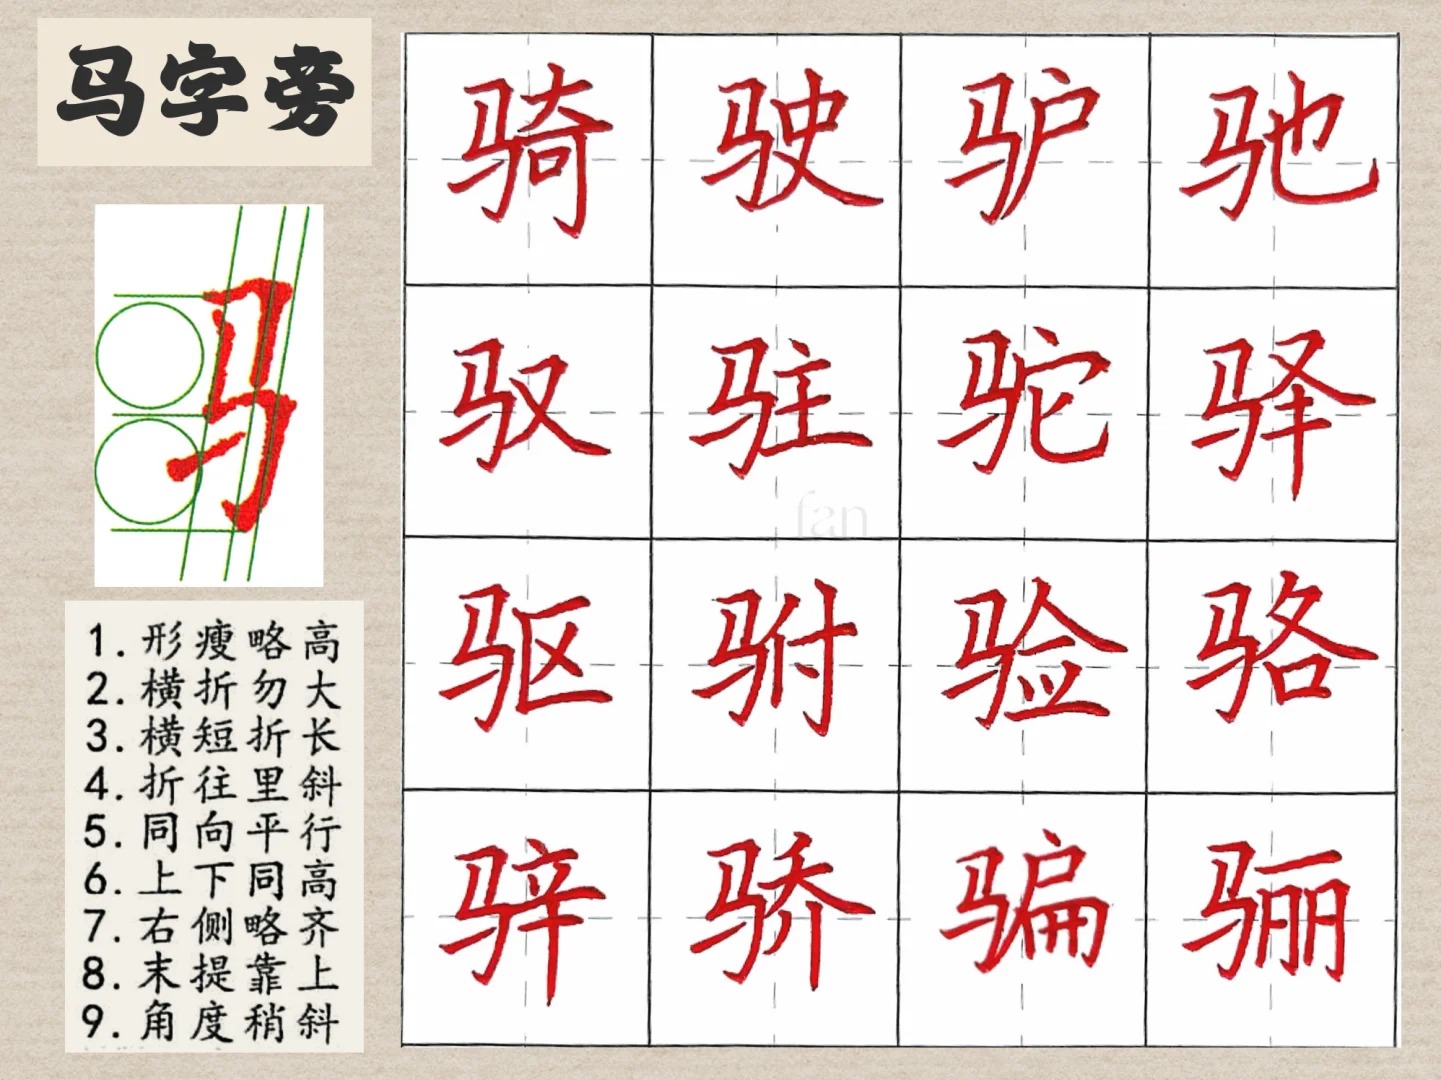 马字旁
骑驶驴驰
驭驻驼驿
fan
驱驸验骆
骍骄骗骊
马
1.形瘦略高
2.横折勿大
3.横短折长
4.折往里斜
5.同向平行
6.上下同高
7.右侧略齐
8.末提靠上
9.角度稍斜